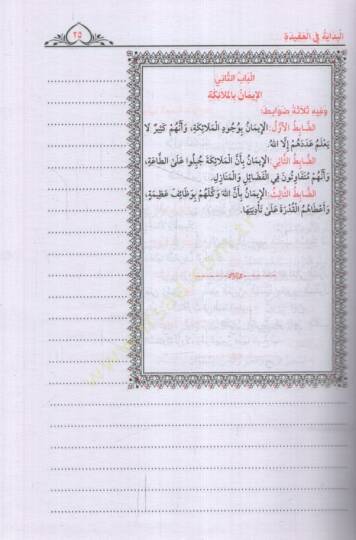 البِدَايَةُ فِي العَقِيدَةِ
٢٥
البَابُ الثَّانِي
الإِيمَانُ بِالمَلَائِكَةِ
وَفِيهِ ثَلَاثَةُ ضَوَابِطَ:
الضَّابِطُ الأَوَّلُ: الإِيمَانُ بِوُجُودِ المَلَائِكَةِ، وَأَنَّهُمْ كَثِيرٌ لَا
يَعْلَمُ عَدَدَهُمْ إِلَّا اللهُ.
الضَّابِطُ الثَّانِي: الإِيمَانُ بِأَنَّ المَلَائِكَةَ جُبِلُوا عَلَى الطَّاعَةِ،
وَأَنَّهُمْ مُتَفَاوِتُونَ فِي الفَضَائِلِ وَالمَنَازِلِ.
الضَّابِطُ الثَّالِثُ: الإِيمَانُ بِأَنَّ اللهَ وَكَّلَهُمْ بِوَظَائِفَ عَظِيمَةٍ،
وَأَعْطَاهُمُ القُدْرَةَ عَلَى تَأْدِيَتِهَا.